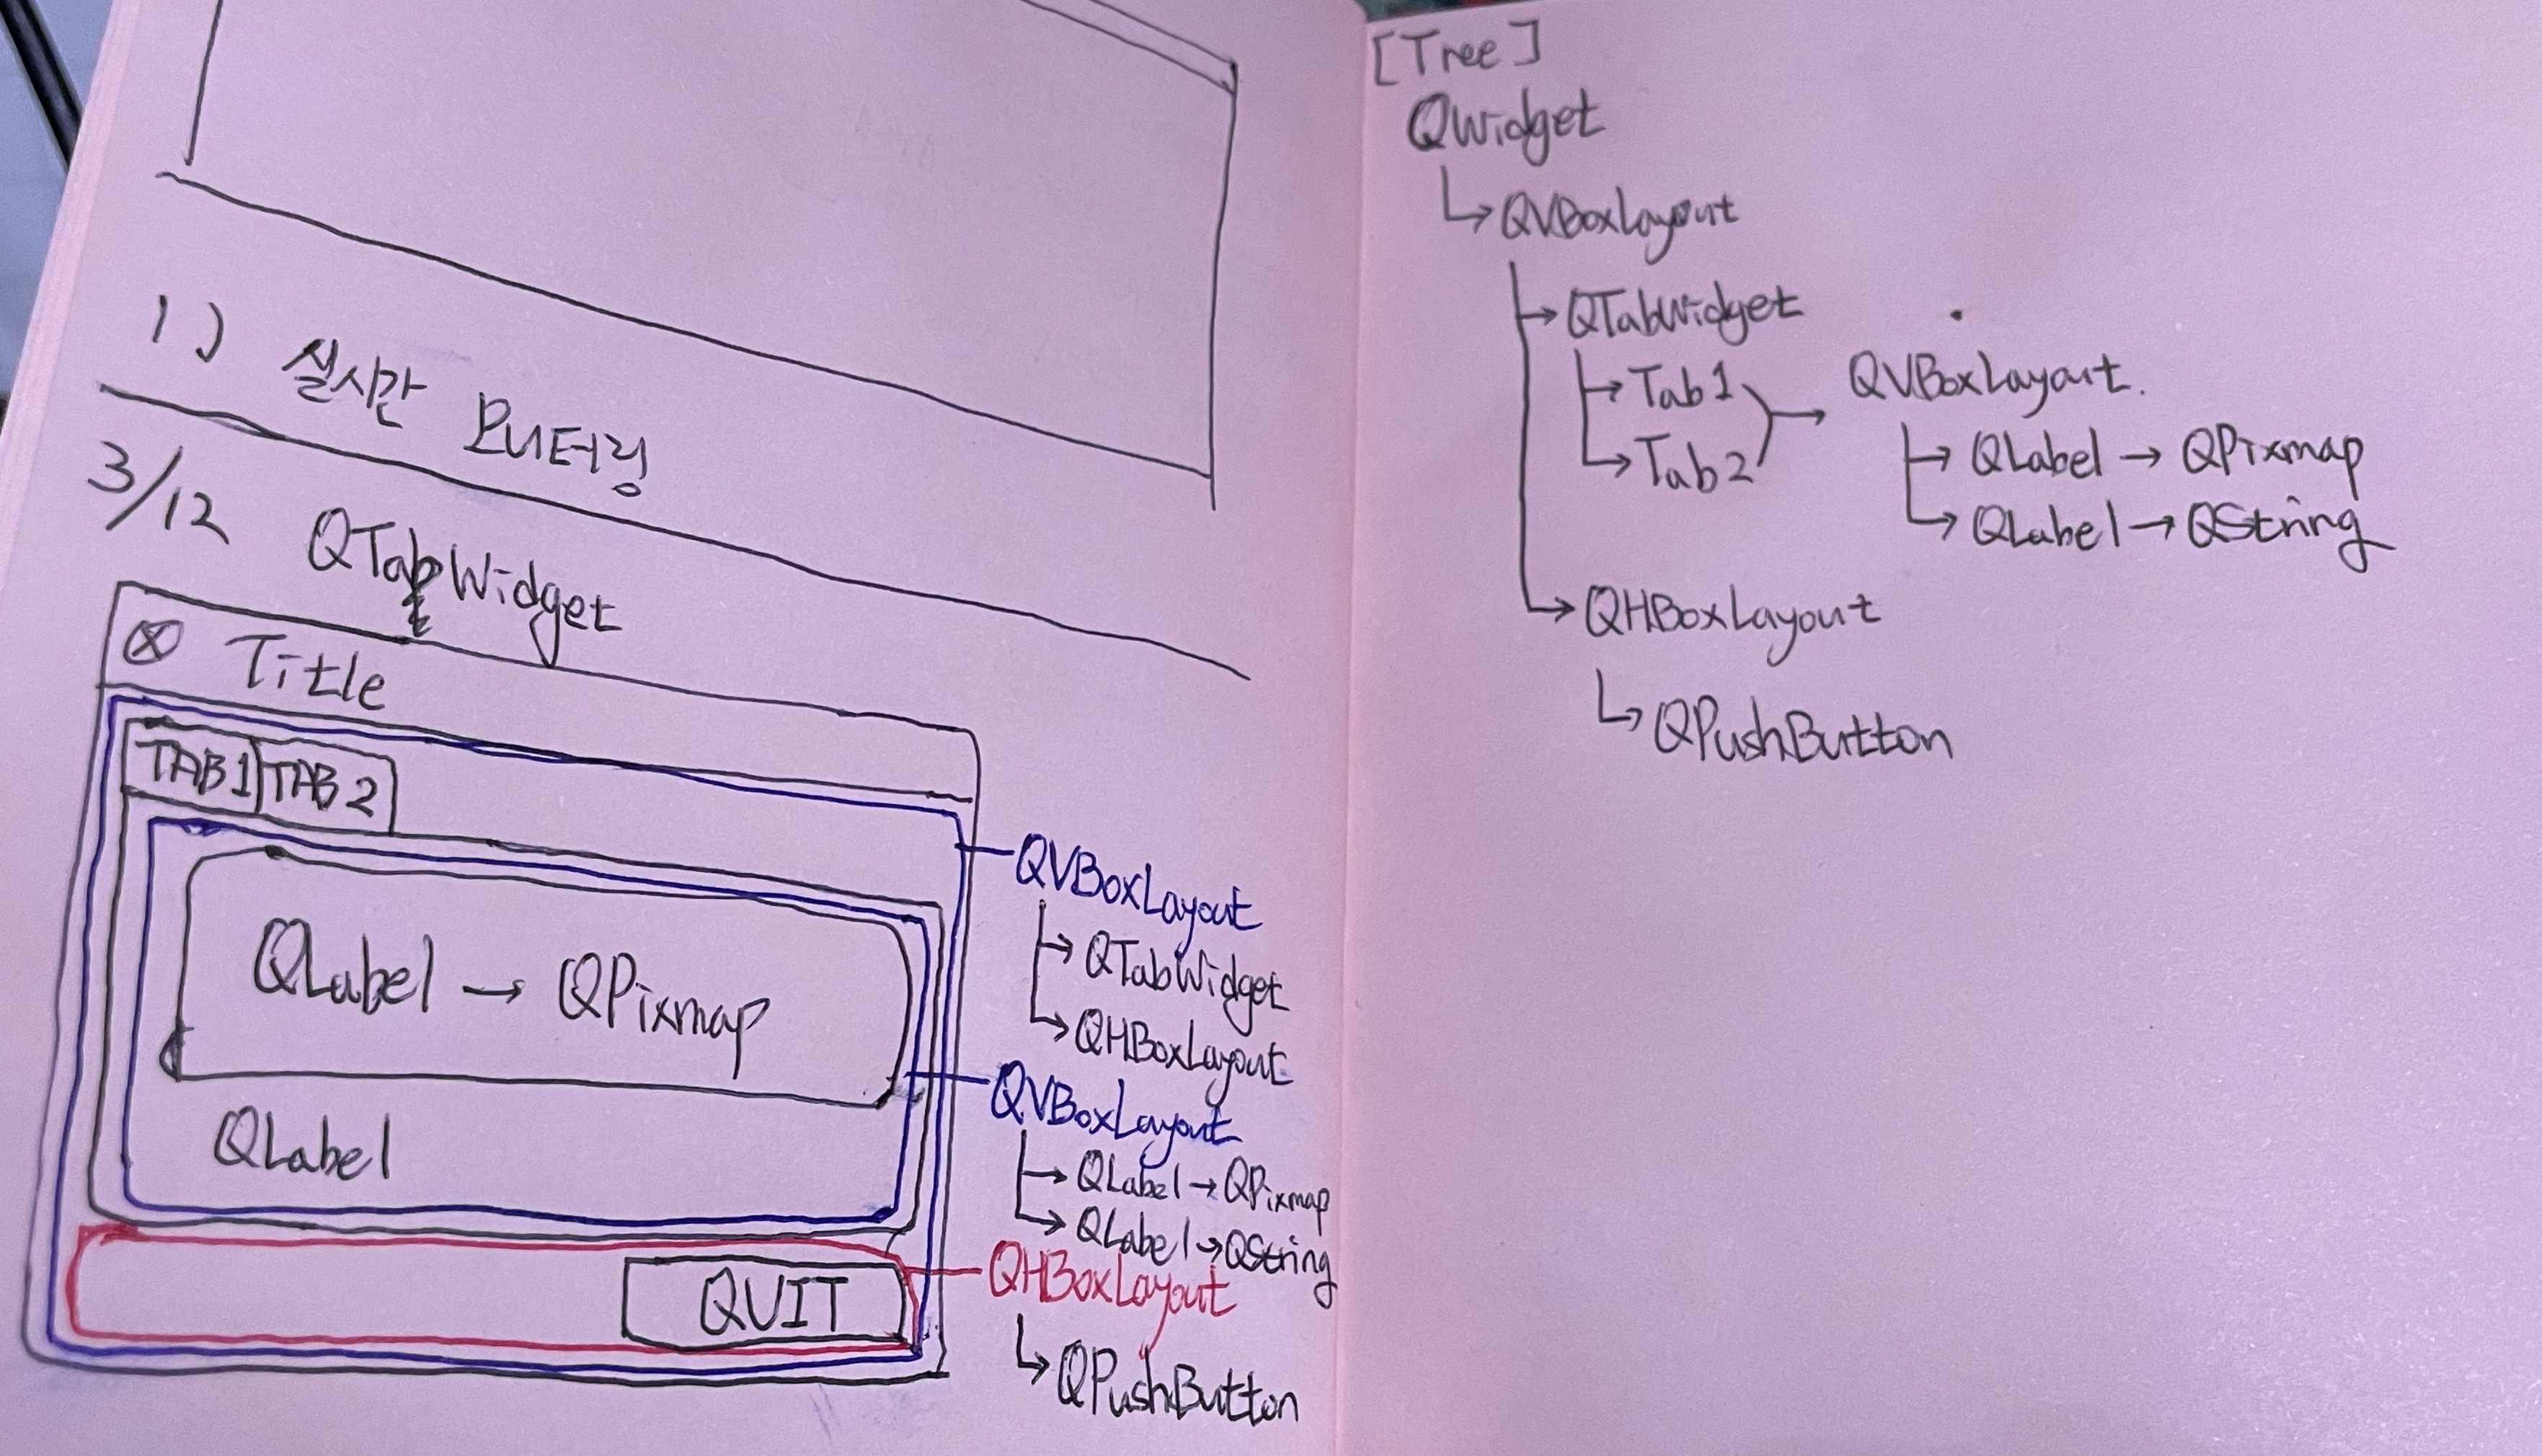 1) 실시간 모니터링
3/12 QTabWidget
Title
TAB1 TAB2
QLabel → QPixmap
QLabel
QUIT
QVBoxLayout
QTabWidget
QHBoxLayout
QVBoxLayout
QLabel → QPixmap
QLabel → QString
QHBoxLayout
QPushButton
[Tree]
QWidget
QVBoxLayout
QTabWidget
Tab1
Tab2
QVBoxLayout.
QLabel → QPixmap
QLabel → QString
QHBoxLayout
QPushButton